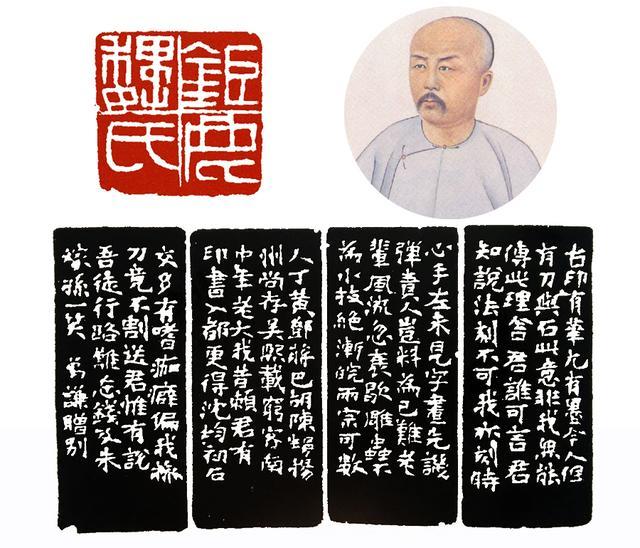 鉅鹿
魏氏
古印有筆尤有墨今人但
有刀與石此意非我無能
傳此理舍君誰可言君
知說法刻不可我亦刻時
心手左未見字畫先譏
彈責人豈料爲己難老
輩風流忽衰歇雕蟲
爲小技絕漸皖兩宗可數
人丁黃鄧蔣巴胡陳曼生揚
州尚存吳熙載窮客南
中年老大我昔賴君有
印書入都更得沈均初石
交多有嗜痂癖偏我操
刀竟不割送君惟有說
吾徒行路難忘錢及朱
稼孫一笑 謙贈別